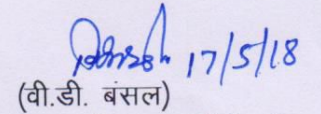 17/5/18
(वी.डी. बंसल)